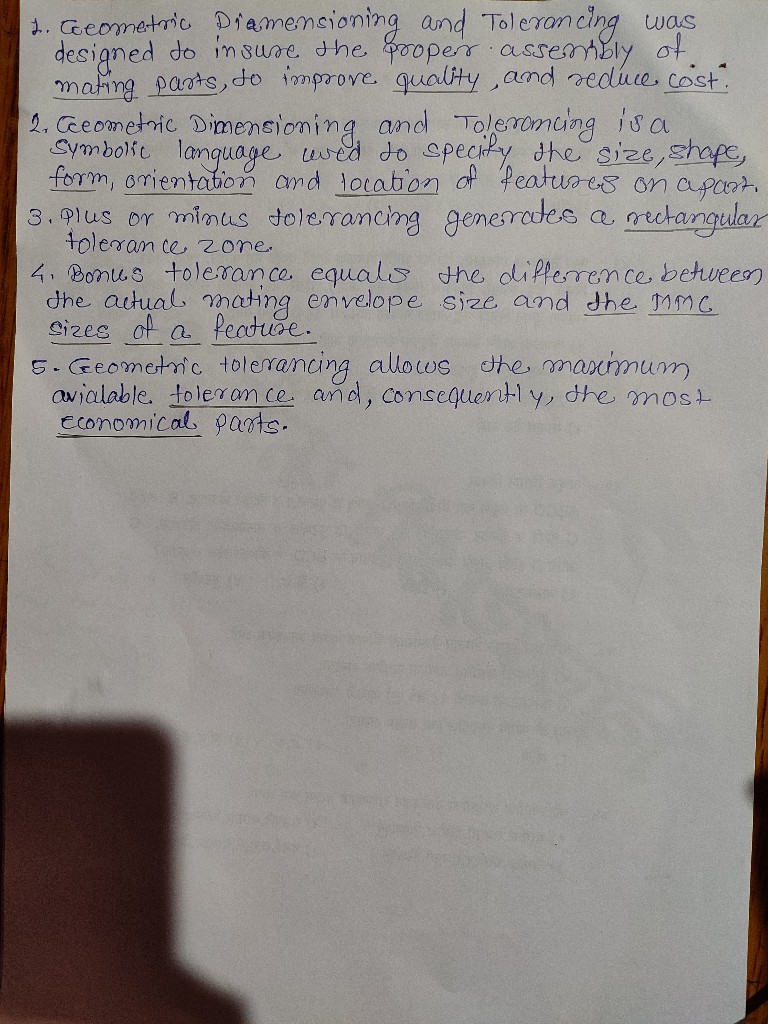 1. Geometric Diamensioning and Tolerancing was
designed to insure the proper assembly of
mating parts, to improve quality, and reduce cost.
2. Geometric Dimensioning and Tolerancing is a
Symbolic language used to specify the size, shape,
form, orientation and location of features on a part.
3. Plus or minus tolerancing generates a rectangular
tolerance zone.
4. Bonus tolerance equals the difference between
the actual mating envelope size and the MMC
sizes of a feature.
5. Geometric tolerancing allows the maximum
avialable tolerance and, consequently, the most
economical parts.